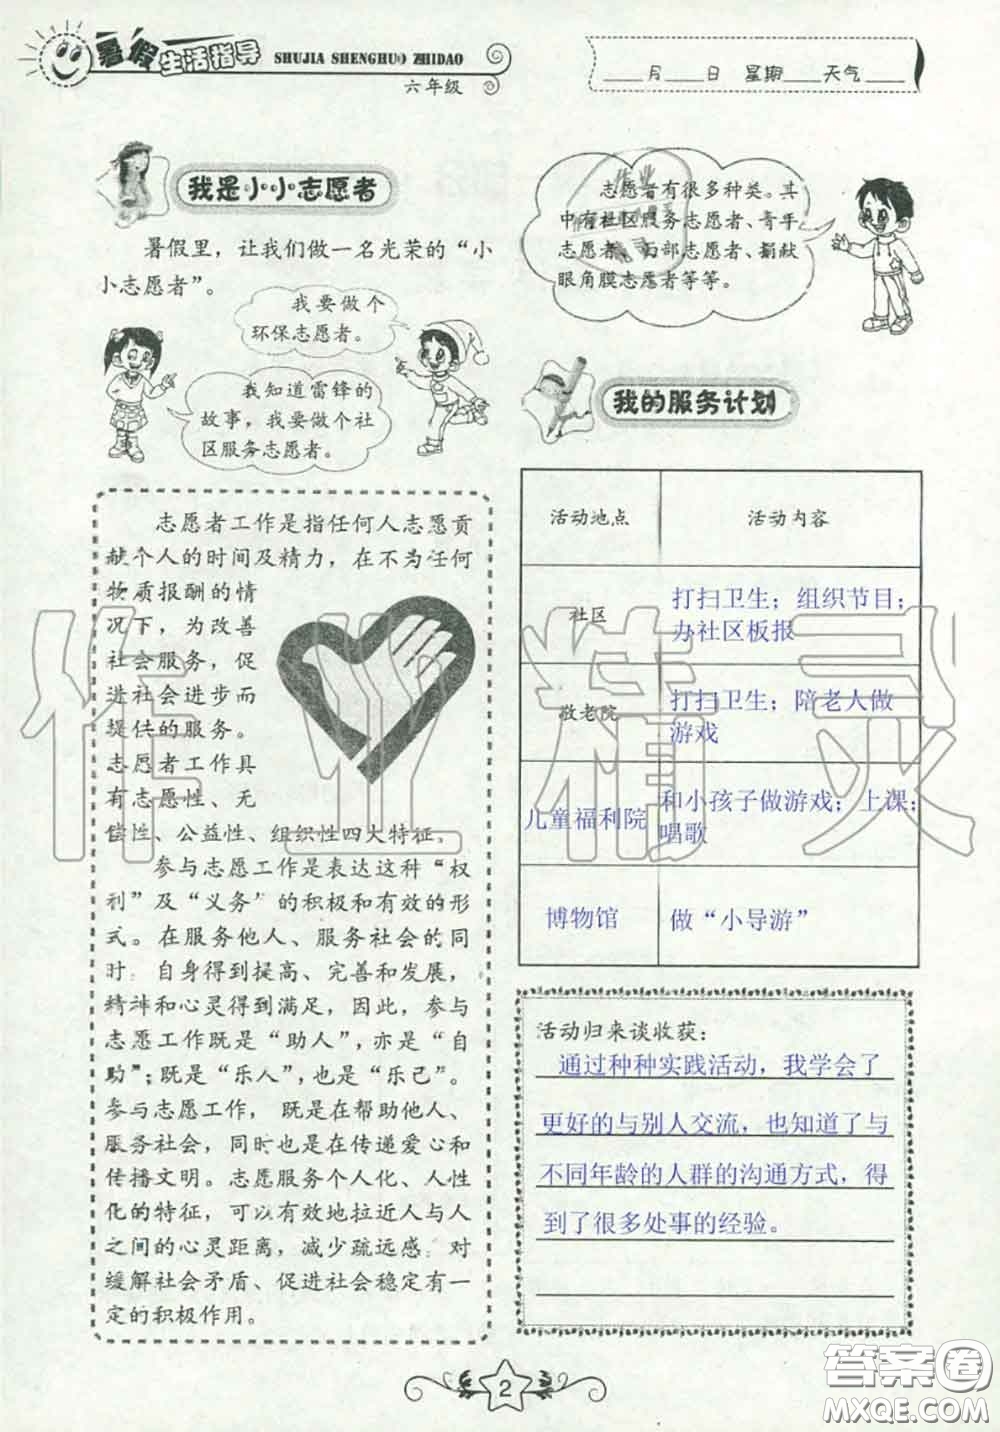 暑假生活指导 SHUJIA SHENGHUO ZHIDAO
六年级
____月____日 星期____天气____
我是小小志愿者
暑假里，让我们做一名光荣的“小
小志愿者”。
我要做个
环保志愿者。
我知道雷锋的
故事，我要做个社
区服务志愿者。
志愿者工作是指任何人志愿贡
献个人的时间及精力，在不为任何
物质报酬的情
况下，为改善
社会服务，促
进社会进步而
提供的服务。
志愿者工作具
有志愿性、无
偿性、公益性、组织性四大特征。
参与志愿工作是表达这种“权
利”及“义务”的积极和有效的形
式。在服务他人、服务社会的同
时，自身得到提高、完善和发展，
精神和心灵得到满足，因此，参与
志愿工作既是“助人”，亦是“自
助”；既是“乐人”，也是“乐己”。
参与志愿工作，既是在帮助他人、
服务社会，同时也是在传递爱心和
传播文明。志愿服务个人化、人性
化的特征，可以有效地拉近人与人
之间的心灵距离，减少疏远感，对
缓解社会矛盾、促进社会稳定有一
定的积极作用。
志愿者有很多种类。其
中有社区服务志愿者、青年
志愿者、西部志愿者、捐献
眼角膜志愿者等等。
我的服务计划
活动地点 活动内容
社区 打扫卫生；组织节目；
办社区板报
敬老院 打扫卫生；陪老人做
游戏
儿童福利院 和小孩子做游戏；上课；
唱歌
博物馆 做“小导游”
活动归来谈收获：
通过种种实践活动，我学会了
更好的与别人交流，也知道了与
不同年龄的人群的沟通方式，得
到了很多处事的经验。
2
作业精灵
答案圈
MXQE.COM